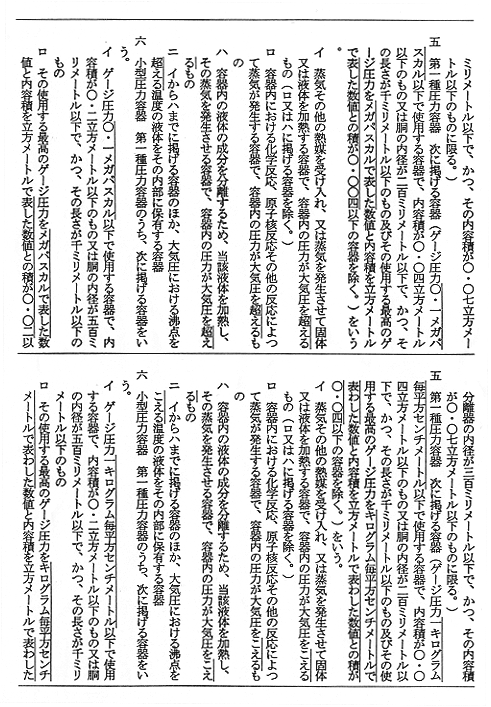 ミリメートル以下で、かつ、その内容積が〇・〇七立方メー
トル以下のものに限る。）
五　第一種圧力容器　次に掲げる容器（ゲージ圧力〇・一メガパ
スカル以下で使用する容器で、内容積が〇・〇四立方メートル
以下のもの又は胴の内径が二百ミリメートル以下で、かつ、そ
の長さが千ミリメートル以下のもの及びその使用する最高のゲ
ージ圧力をメガパスカルで表した数値と内容積を立方メートル
で表した数値との積が〇・〇〇四以下の容器を除く。）をいう
。
イ　蒸気その他の熱媒を受け入れ、又は蒸気を発生させて固体
又は液体を加熱する容器で、容器内の圧力が大気圧を超える
もの（ロ又はハに掲げる容器を除く。）
ロ　容器内における化学反応、原子核反応その他の反応によつ
て蒸気が発生する容器で、容器内の圧力が大気圧を超えるもの
ハ　容器内の液体の成分を分離するため、当該液体を加熱し、
その蒸気を発生させる容器で、容器内の圧力が大気圧を超え
るもの
ニ　イからハまでに掲げる容器のほか、大気圧における沸点を
超える温度の液体をその内部に保有する容器
六　小型圧力容器　第一種圧力容器のうち、次に掲げる容器をい
う。
イ　ゲージ圧力〇・一メガパスカル以下で使用する容器で、内
容積が〇・二立方メートル以下のもの又は胴の内径が五百ミ
リメートル以下で、かつ、その長さが千ミリメートル以下の
もの
ロ　その使用する最高のゲージ圧力をメガパスカルで表した数
値と内容積を立方メートルで表した数値との積が〇・〇二以
分離器の内径が三百ミリメートル以下で、かつ、その内容積
が〇・〇七立方メートル以下のものに限る。）
五　第一種圧力容器　次に掲げる容器（ゲージ圧力一キログラム
毎平方センチメートル以下で使用する容器で、内容積が〇・〇
四立方メートル以下のもの又は胴の内径が二百ミリメートル以
下で、かつ、その長さが千ミリメートル以下のもの及びその使
用する最高のゲージ圧力をキログラム毎平方センチメートルで
表わした数値と内容積を立方メートルで表わした数値との積が
〇・〇四以下の容器を除く。）をいう。
イ　蒸気その他の熱媒を受け入れ、又は蒸気を発生させて固体
又は液体を加熱する容器で、容器内の圧力が大気圧をこえる
もの（ロ又はハに掲げる容器を除く。）
ロ　容器内における化学反応、原子核反応その他の反応によつ
て蒸気が発生する容器で、容器内の圧力が大気圧をこえるもの
ハ　容器内の液体の成分を分離するため、当該液体を加熱し、
その蒸気を発生させる容器で、容器内の圧力が大気圧をこえ
るもの
ニ　イからハまでに掲げる容器のほか、大気圧における沸点を
こえる温度の液体をその内部に保有する容器
六　小型圧力容器　第一種圧力容器のうち、次に掲げる容器をい
う。
イ　ゲージ圧力一キログラム毎平方センチメートル以下で使用
する容器で、内容積が〇・二立方メートル以下のもの又は胴
の内径が五百ミリメートル以下で、かつ、その長さが千ミリ
メートル以下のもの
ロ　その使用する最高のゲージ圧力をキログラム毎平方センチ
メートルで表わした数値と内容積を立方メートルで表わした